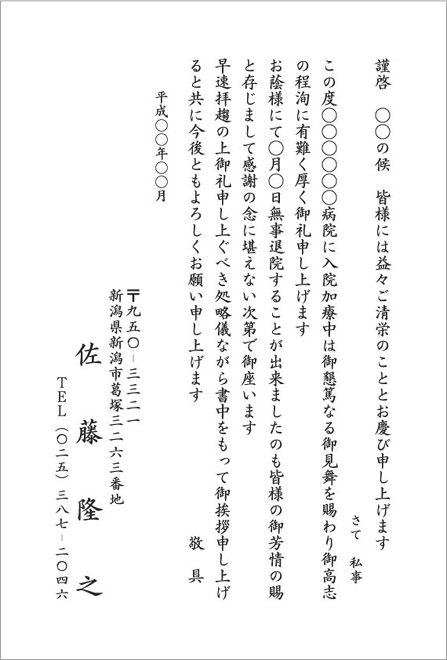 謹啓　〇〇の候　皆様には益々ご清栄のこととお慶び申し上げます
さて　私事
この度〇〇〇〇〇〇病院に入院加療中は御懇篤なる御見舞を賜わり御高志
の程洵に有難く厚く御礼申し上げます
お蔭様にて〇月〇日無事退院することが出来ましたのも皆様の御芳情の賜
と存じまして感謝の念に堪えない次第で御座います
早速拝趨の上御礼申し上ぐべき処略儀ながら書中をもって御挨拶申し上げ
ると共に今後ともよろしくお願い申し上げます
敬具
平成〇〇年〇〇月
〒九五〇－三三二一
新潟県新潟市葛塚三二六三番地
佐藤隆之
TEL（〇二五）三八七－二〇四六